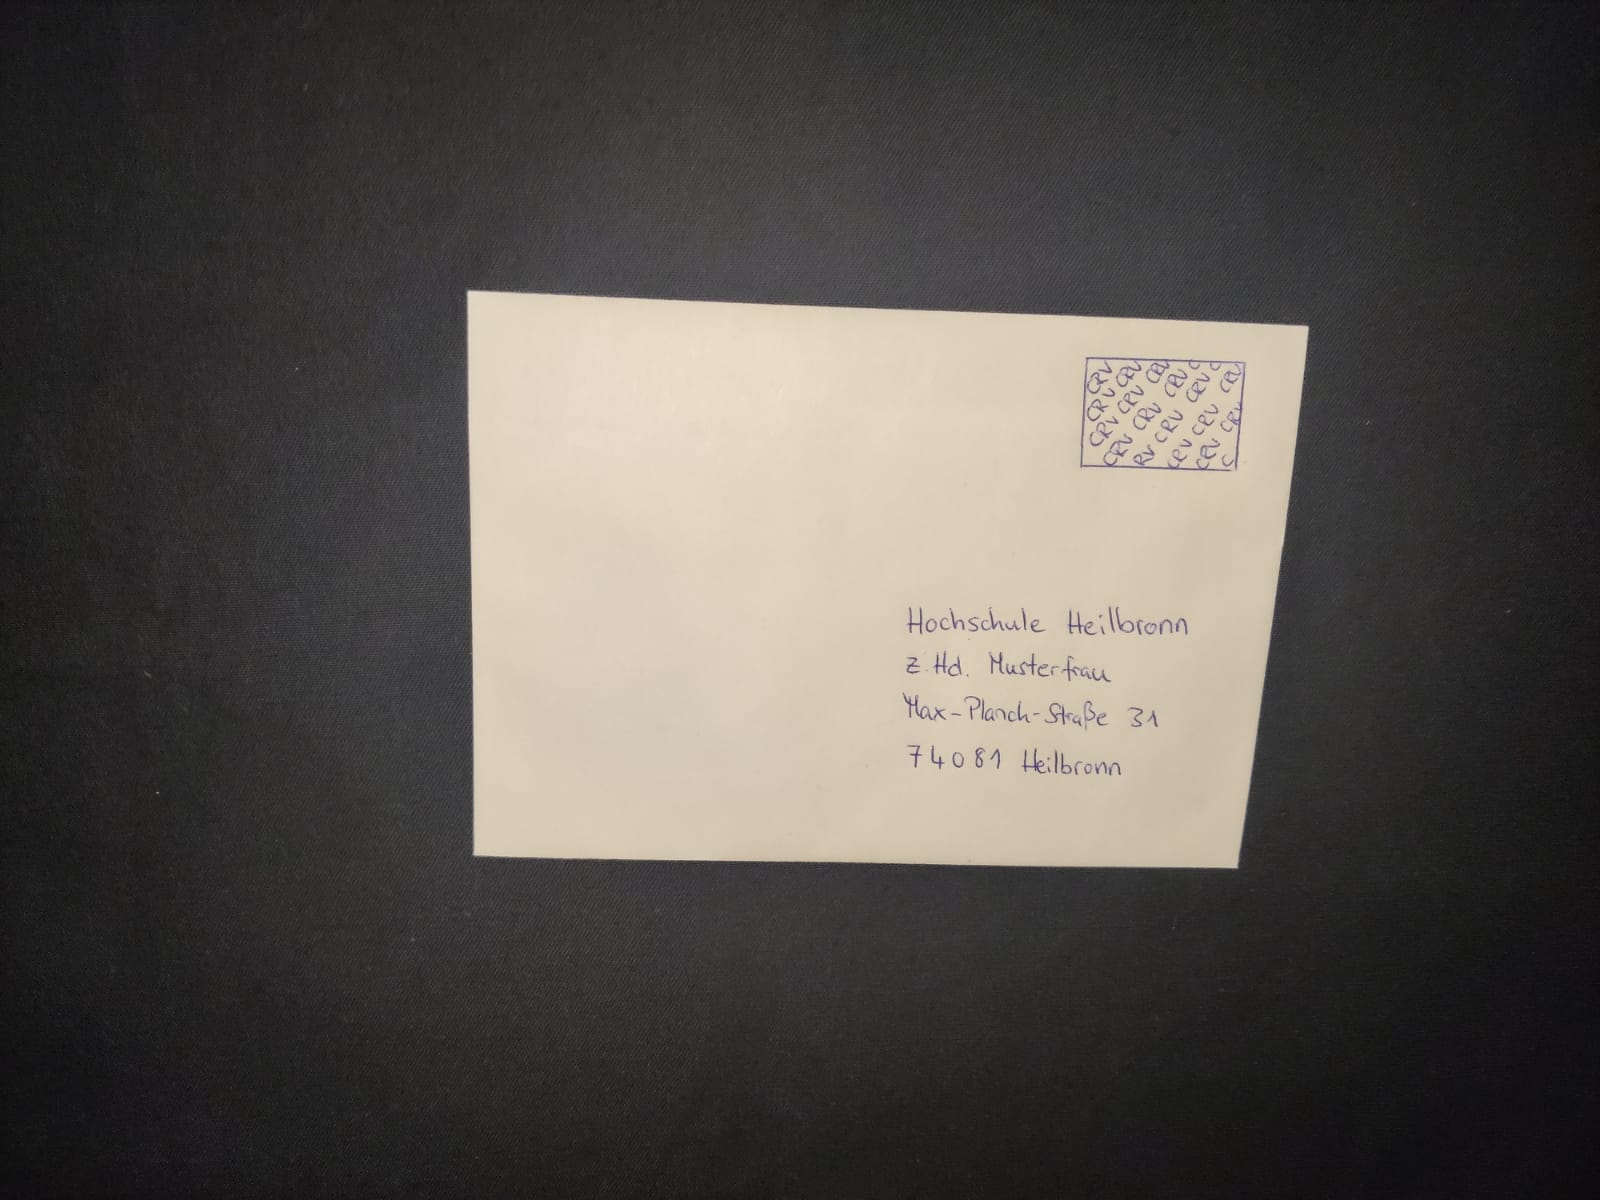 CRV CRV CRV CRV CRV C
CRV CRV CRV CRV CRV
CRV CRV CRV CRV CRV
CRV RV CRV CRV C
Hochschule Heilbronn
z. Hd. Musterfrau
Max-Planck-Straße 31
74081 Heilbronn